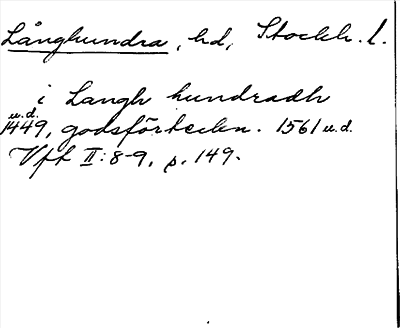 Långhundra, hd, Stockh. l.
i Langh hundradh
u.d.
1449, godsförteckn. 1561 u.d.
Vft II:8-9, p. 149.